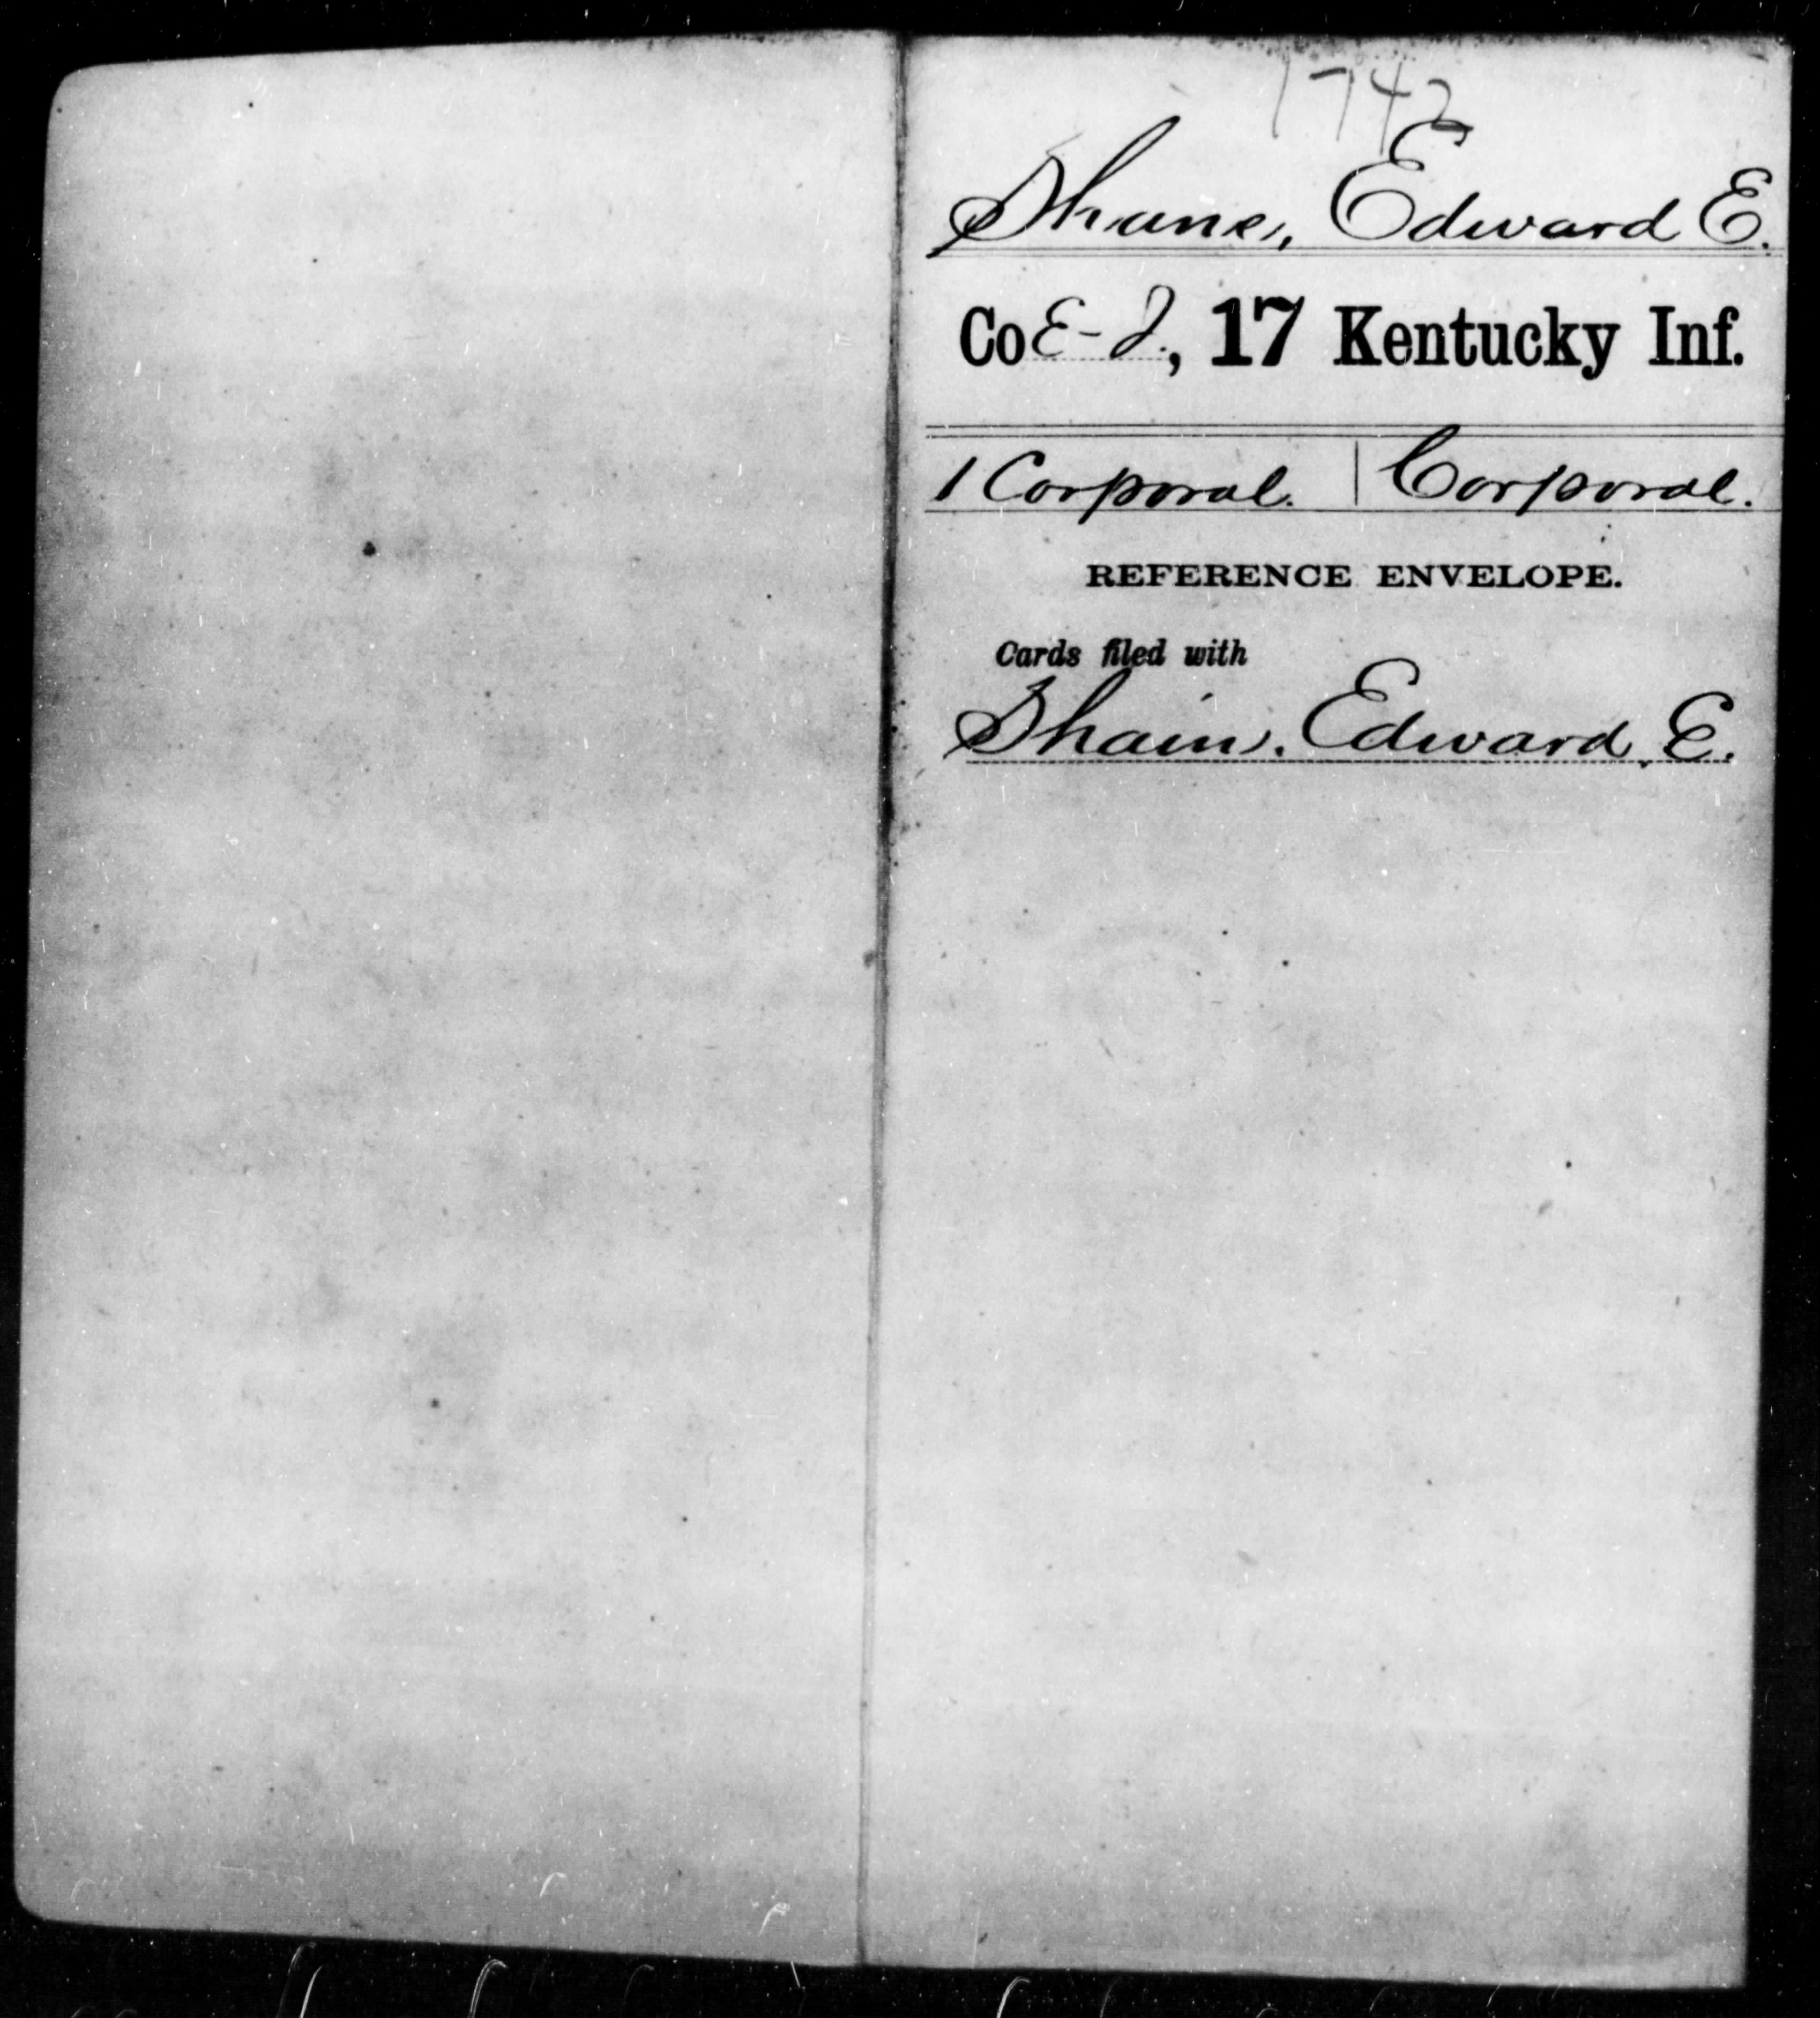 1742
Shane, Edward E.
Co E-I, 17 Kentucky Inf.
1 Corporal. | Corporal.
REFERENCE ENVELOPE.
Cards filed with
Shain, Edward E.